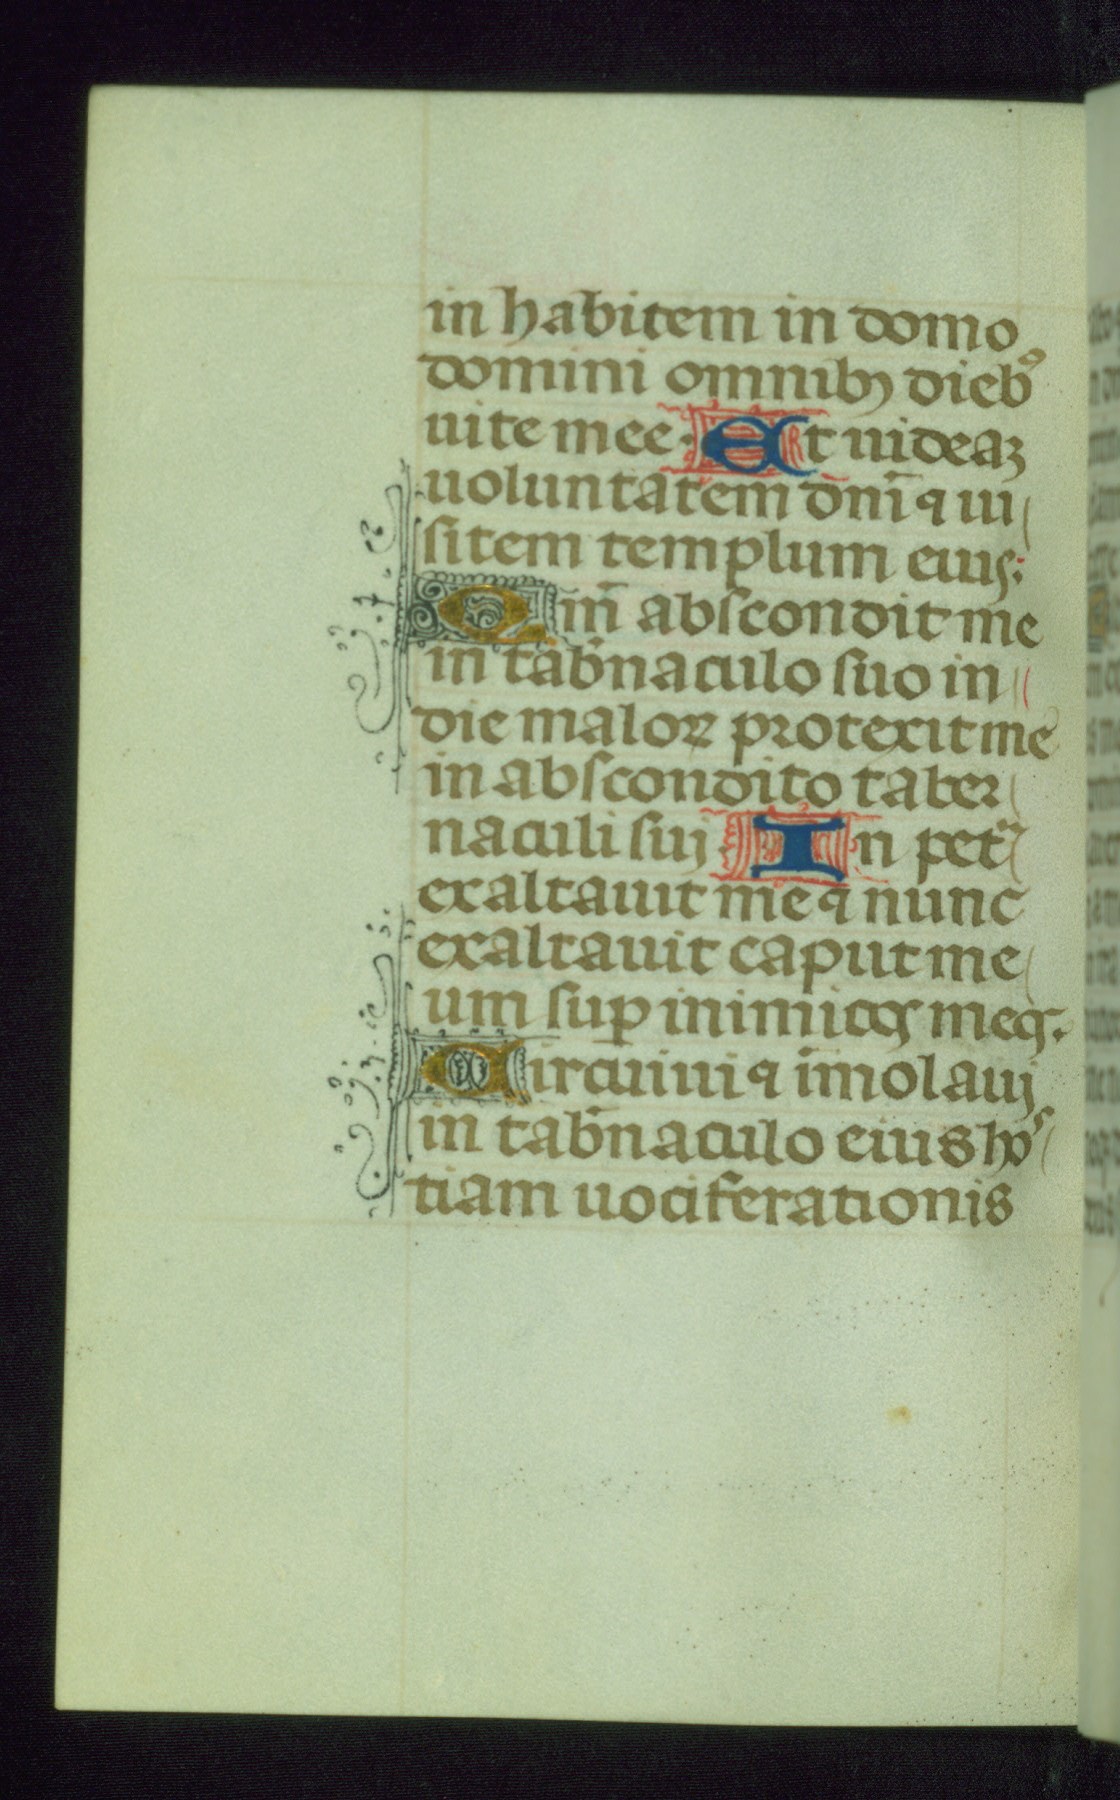 in habitem in domo
domini omnibꝫ dieb⁹
uite mee. Et uideaꝫ
uoluntatem dn̄i ꝯ ui
sitem templum eius:
Qm̄ abscondit me
in tab̄naculo suo in
die maloꝝ protexit me
in abscondito taber
naculi sui. In petᵃ
exaltauit me ꝯ nunc
exaltauit caput me
um suꝑ inimicos meos.
Circuiui ꝯ īmolaui
in tab̄naculo eius hoˢ
tiam uociferationis